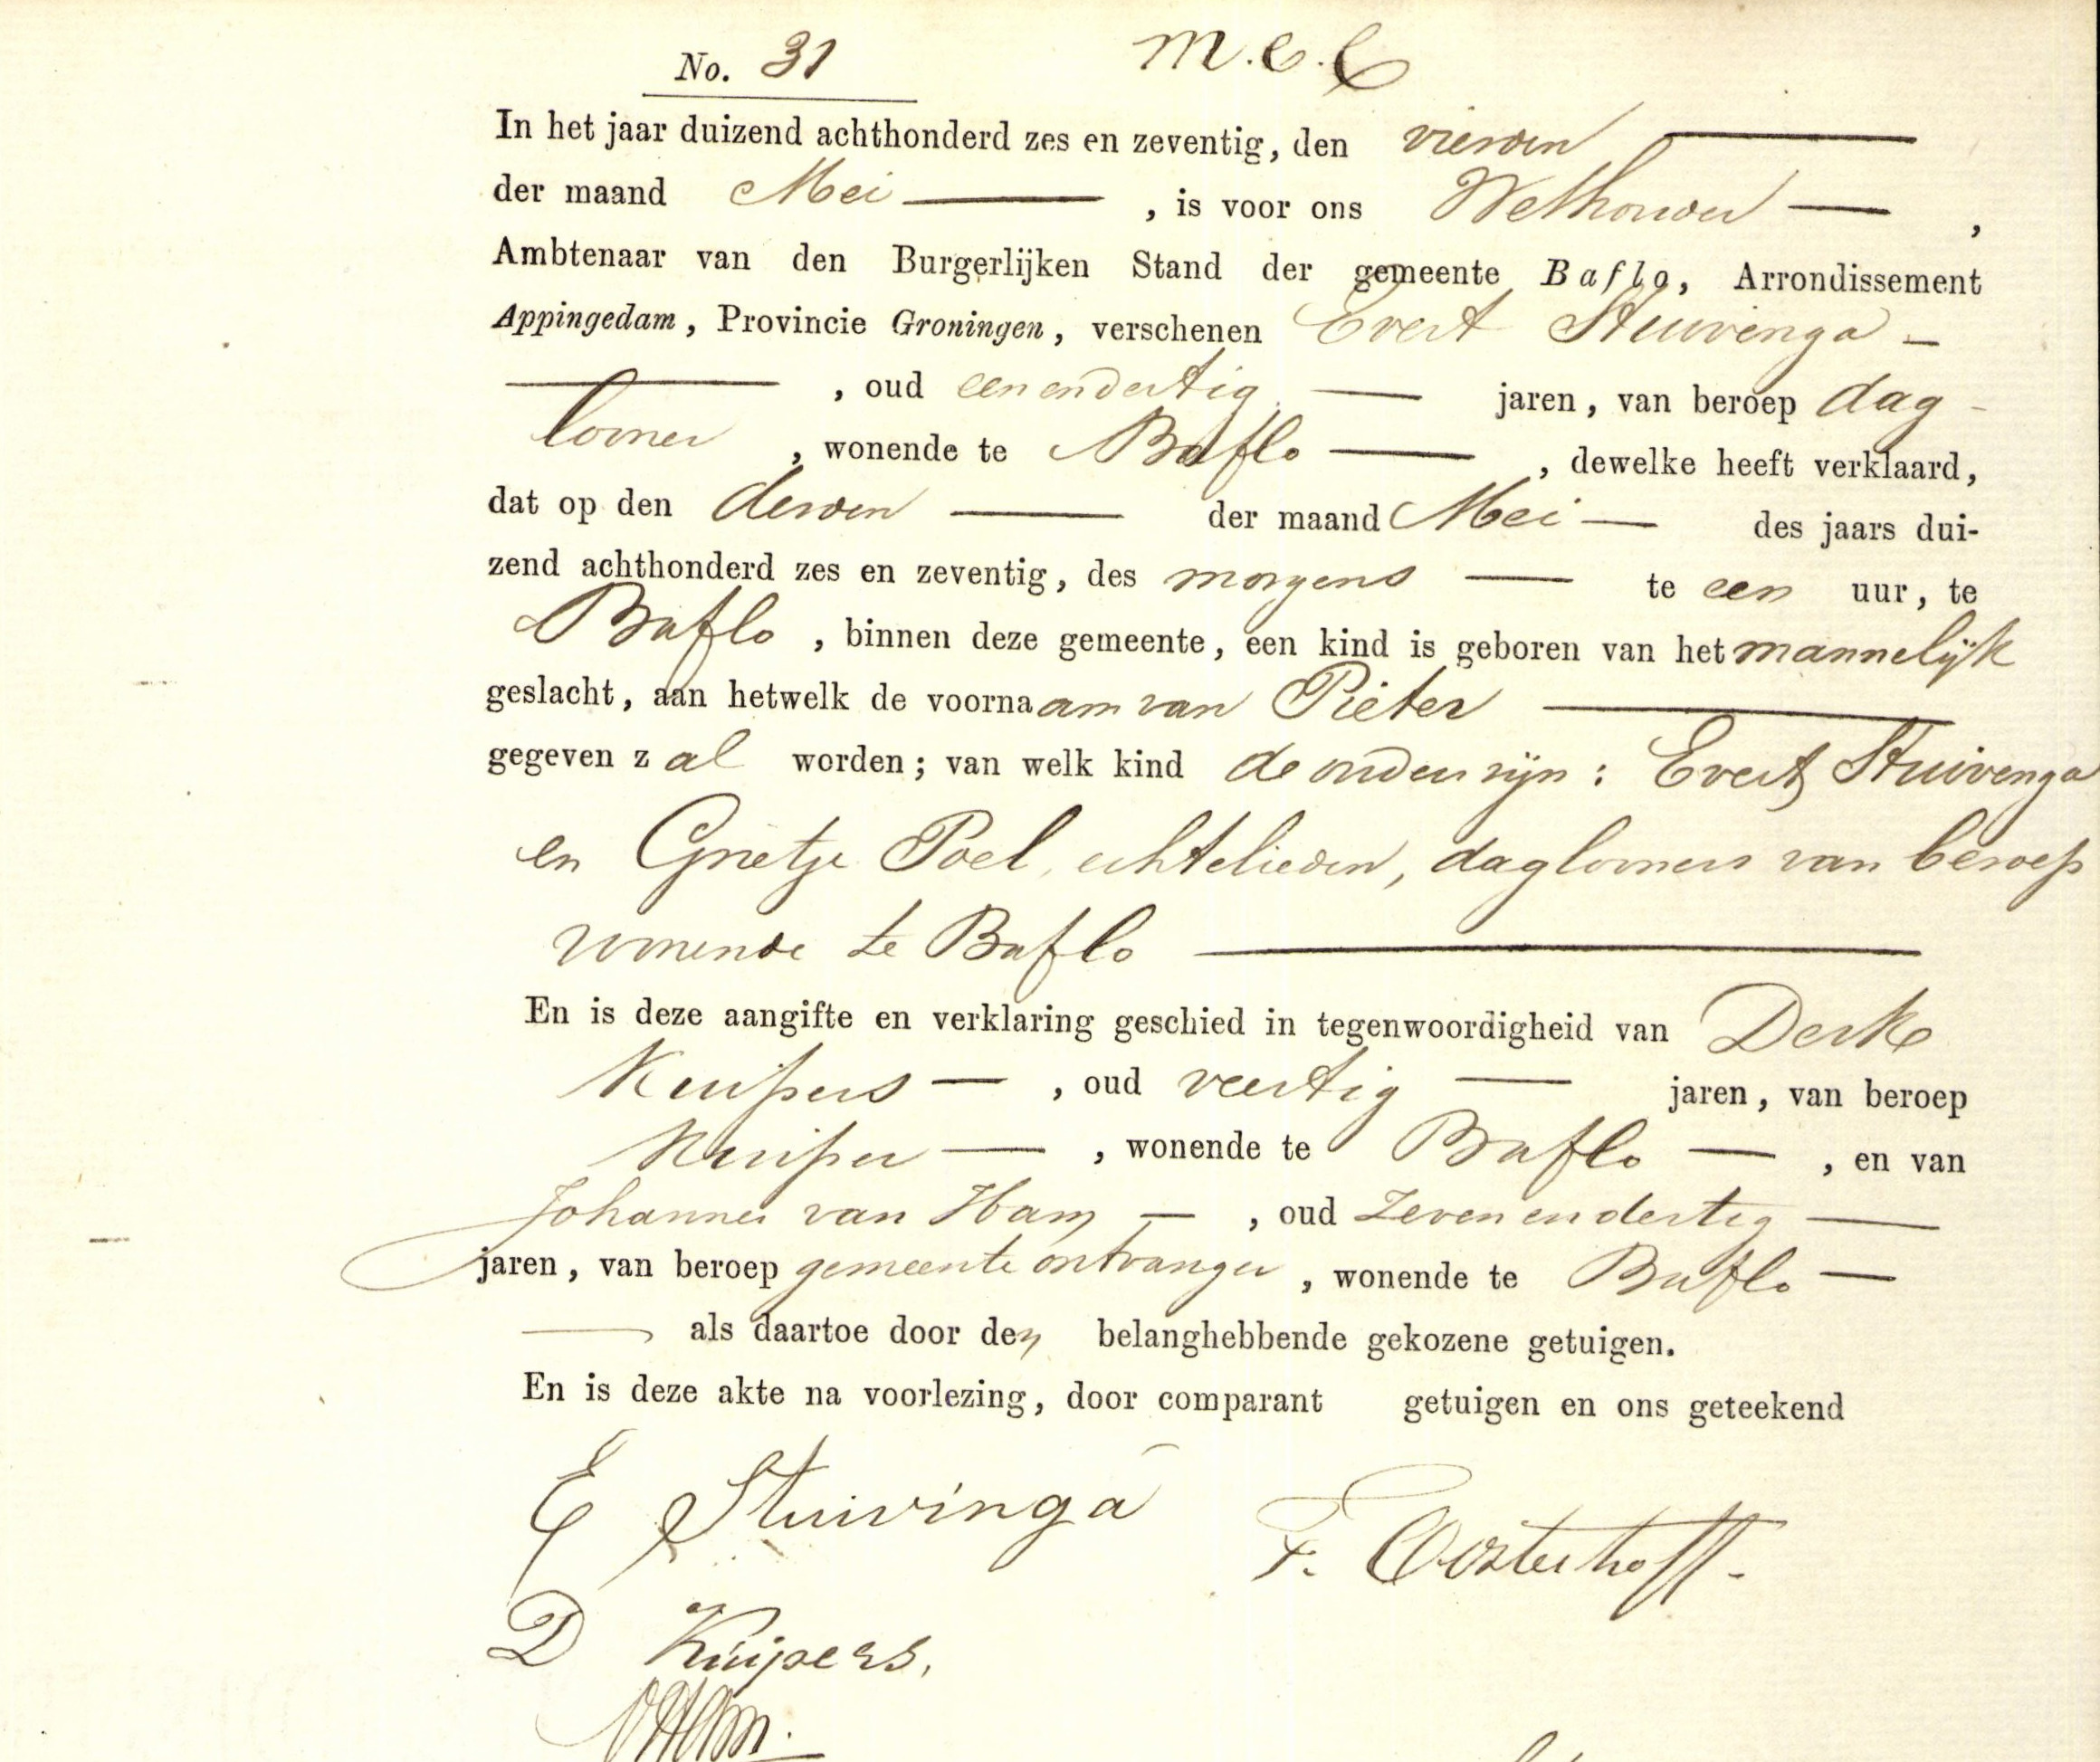 No. 31 M.C.C
In het jaar duizend achthonderd zes en zeventig, den vierden
der maand Mei, is voor ons Wethouder,
Ambtenaar van den Burgerlijken Stand der gemeente Baflo, Arrondissement
Appingedam, Provincie Groningen, verschenen Evert Stuivenga
, oud een en dertig jaren, van beroep dag-
looner, wonende te Baflo, dewelke heeft verklaard,
dat op den derden der maand Mei des jaars dui-
zend achthonderd zes en zeventig, des morgens te een uur, te
Baflo, binnen deze gemeente, een kind is geboren van het mannelijk
geslacht, aan hetwelk de voornaam van Pieter
gegeven zal worden; van welk kind de ouders zijn: Evert Stuivenga
en Grietje Poel, echtelieden, daglooners van beroep
wonende te Baflo
En is deze aangifte en verklaring geschied in tegenwoordigheid van Derk
Kuipers, oud veertig jaren, van beroep
Kuiper, wonende te Baflo, en van
Johannes van Ham, oud zeven en dertig
jaren, van beroep gemeente ontvanger, wonende te Baflo
als daartoe door den belanghebbende gekozene getuigen.
En is deze akte na voorlezing, door comparant getuigen en ons geteekend
E Stuivinga
F. Oosterhoff.
D Kuipers.